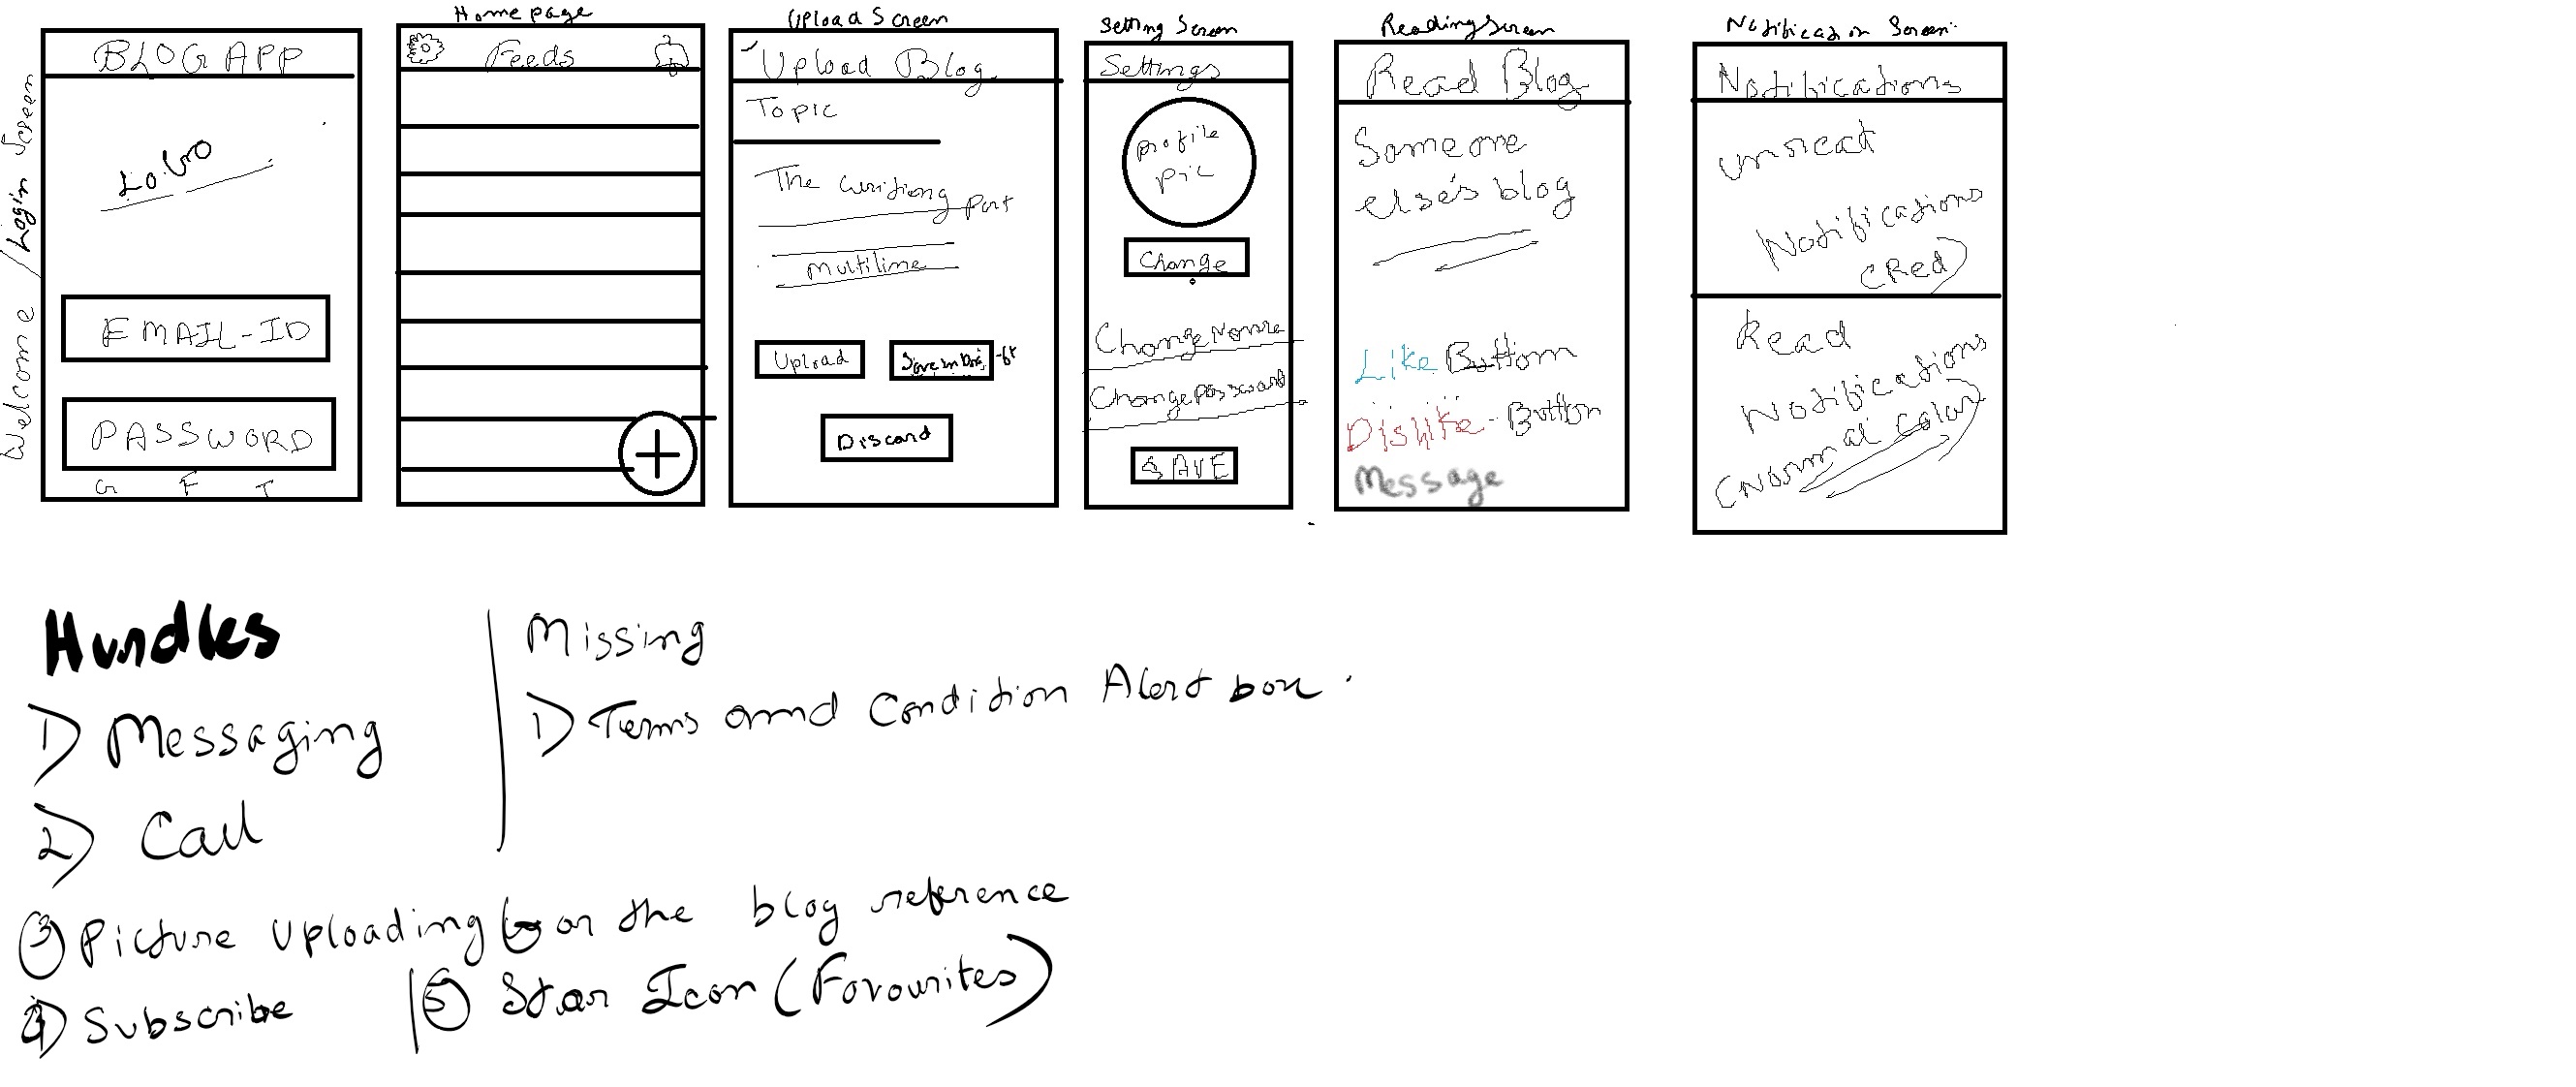 Welcome / Login Screen
BLOG APP
LOGO
EMAIL-ID
PASSWORD
G F T
Home page
Feeds
Upload Screen
Upload Blog
Topic
The writiong part
multiline
Upload
Save in Dra-ft
Discard
Setting Screen
Settings
profile
pic
Change
Change Name
Change password
SAVE
Reading Screen
Read Blog
Someone
else's blog
Like Button
Dislike Button
Message
Notification Screen
Notifications
unread
Notifications
(Red)
Read
Notifications
(Normal color)
Hundles
1) Messaging
2) Call
3 Picture Uploading for the blog reference
4) Subscribe
5 Star Icon (Favourites)
Missing
1) Terms and Condition Alert box.